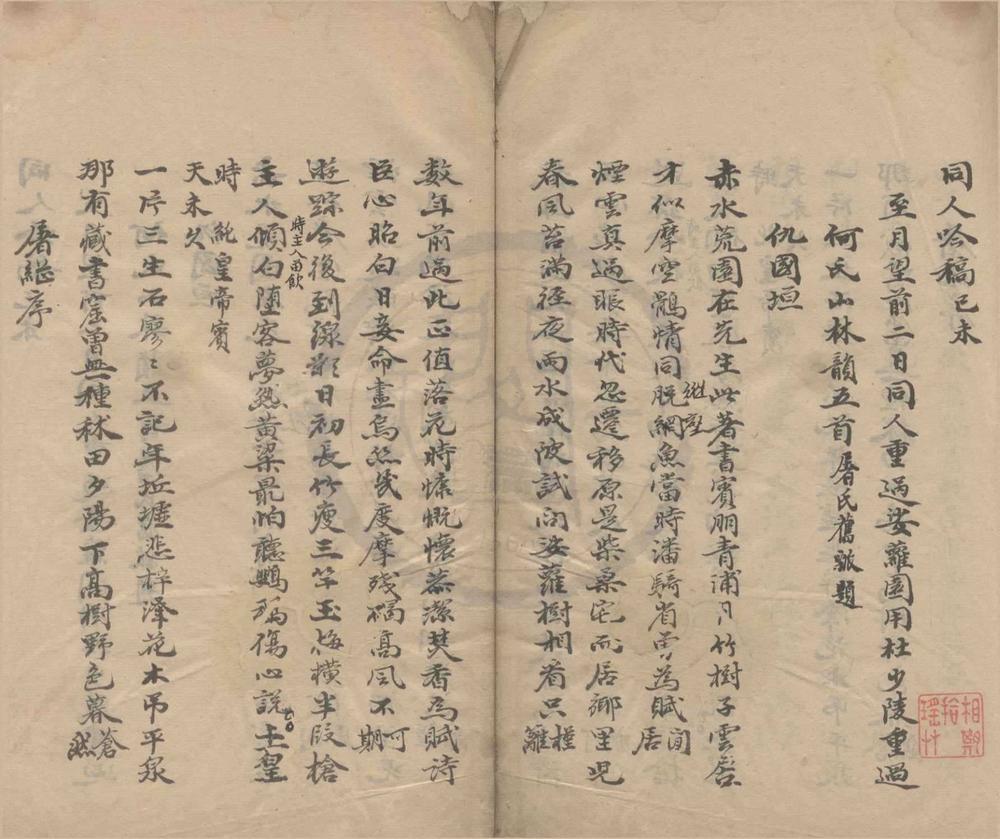 同人吟稿己未
至月望前二日同人重過娑蘿園用杜少陵重過
何氏山林韻五首屠氏舊皷題
仇國垣
赤水荒園在先生此著書賓朋青浦月竹樹子雲居
才似摩空鶻情同脫網魚當時潘騎省曾為賦閒居
継序
煙雲真過眼時代忽遷移原是柴桑宅而居鄉里兒
春風苔滿徑夜雨水成陂試問娑蘿樹相看只槿籬
數年前過此正值落花時慷慨懷恭潔焚香為賦詩
臣心昭白日妾命盡烏絲幾度摩殘碣高風不可期
遊踪今後到線影日初長竹瘦三竿玉梅橫半段槍
時主人留飲
主人傾白墮客夢熟黃粱最怕聽鸚鵡傷心說上皇
時純皇帝賓
天未久
一片三生石寥寥不記年丘墟悲梓澤花木吊平泉
那有藏書窟曾無種秫田夕陽下高樹野色暮蒼然
屠継序